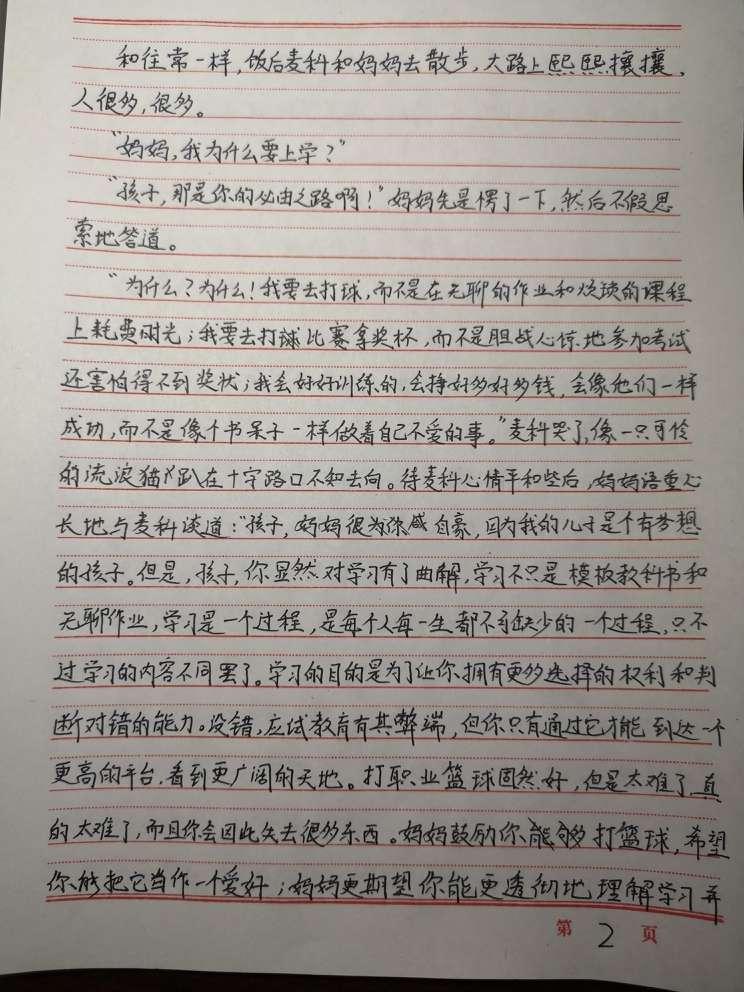 和往常一样，饭后麦科和妈妈去散步，大路上熙熙攘攘，
人很多，很多。
“妈妈，我为什么要上学？”
“孩子，那是你的必由之路啊！”妈妈先是愣了一下，然后不假思
索地答道。
“为什么？为什么！我要去打球，而不是在无聊的作业和烦琐的课程
上耗费时光；我要去打球比赛拿奖杯，而不是胆战心惊地参加考试
还害怕得不到奖状；我会好好训练的，会挣好多好多钱，会像他们一样
成功，而不是像个书呆子一样做着自己不爱的事。”麦科哭了，像一只可怜
的流浪猫趴在十字路口不知去向。待麦科心情平和些后，妈妈语重心
长地与麦科谈道：“孩子，妈妈很为你感自豪，因为我的儿子是个有梦想
的孩子。但是，孩子，你显然对学习有了曲解，学习不只是模板教科书和
无聊作业，学习是一个过程，是每个人每一生都不可缺少的一个过程，只不
过学习的内容不同罢了。学习的目的是为了让你拥有更多选择的权利和判
断对错的能力。没错，应试教育有其弊端，但你只有通过它才能到达一个
更高的平台，看到更广阔的天地。打职业篮球固然好，但是太难了，真
的太难了，而且你会因此失去很多东西。妈妈鼓励你能够打篮球，希望
你能把它当作一个爱好；妈妈更期望你能更透彻地理解学习并
第 2 页